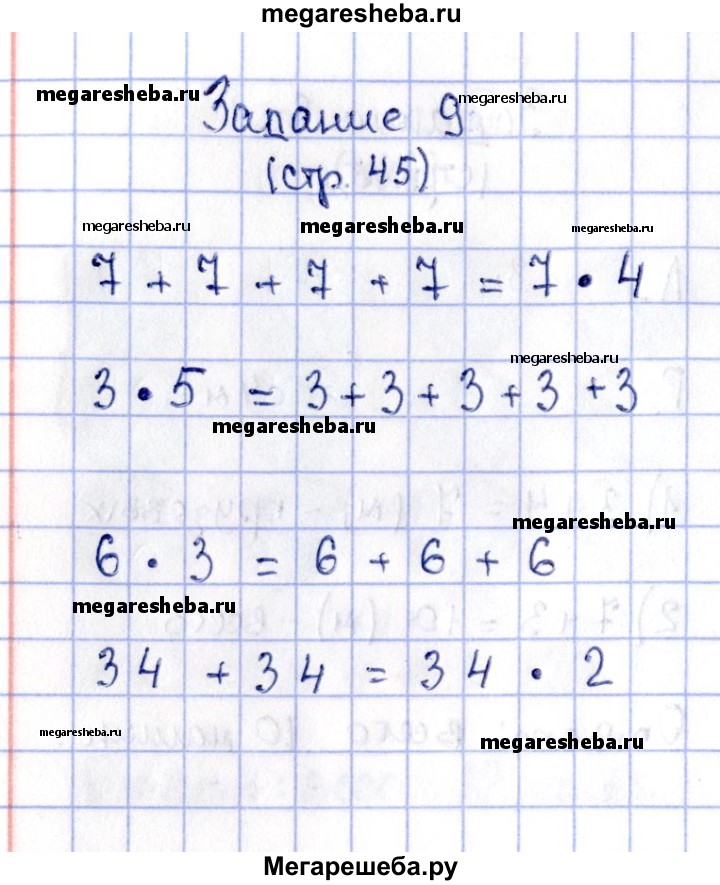 megaresheba.ru
megaresheba.ru
Задание 9
megaresheba.ru
(стр. 45)
megaresheba.ru
megaresheba.ru
megaresheba.ru
7 + 7 + 7 + 7 = 7 · 4
megaresheba.ru
3 · 5 = 3 + 3 + 3 + 3 + 3
megaresheba.ru
megaresheba.ru
6 · 3 = 6 + 6 + 6
megaresheba.ru
34 + 34 = 34 · 2
megaresheba.ru
megaresheba.ru
Мегарешеба.ру